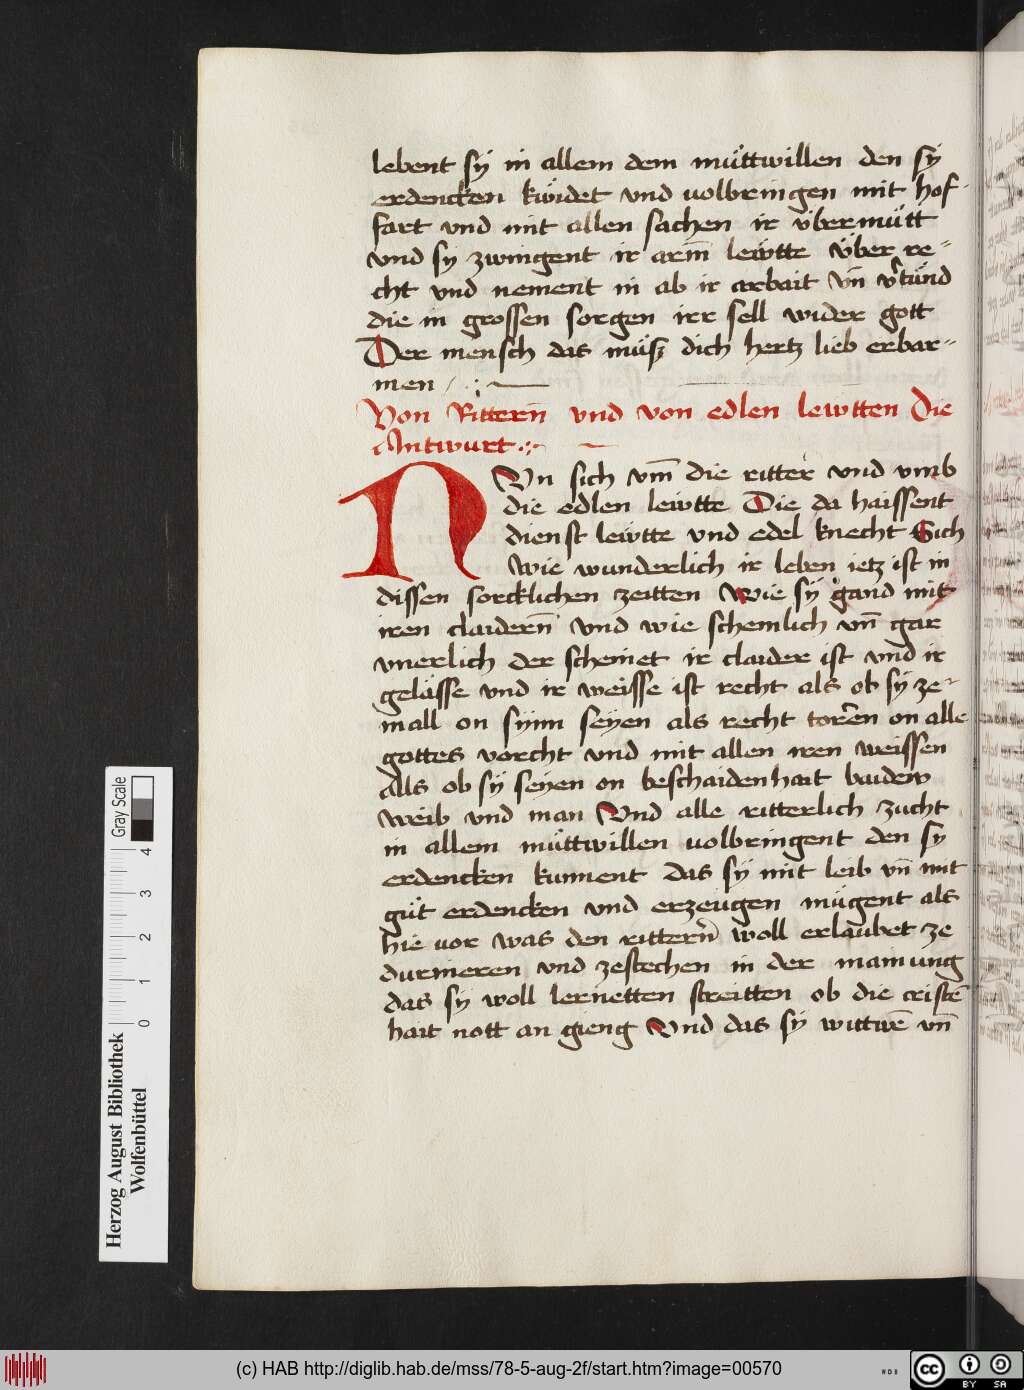 lebent sÿ in allem dem mu̇ttwillen den sÿ
erdencken ku̇ndet vnd uolbringen mit hof-
fart vnd mit allen sachen ir u̇bermu̇tt
vnd sy zwingent ir arm̅ leẅtte u̇ber re=
cht vnd nement in ab ir arbait vn̅ v̕tünd
die in grossen sorgen irr sell wider gott
Der mensch das mu̇sz dich hertz lieb erbar=
men
Von Rittern̅ vnd von edlen lewtten Die
Antwurt
NVn sich vm̅ die ritter vnd vmb
die edlen leẅtte Die da haissent
dienst leẅtte vnd edel knecht Sich
wie wunderlich ir leben ietz ist in
dissen sorcklichen zeitten Wie sÿ gand mit
iren claidern̅ vnd wie schemlich vn̅ gar
vnerlich der scheinet ir claider ist vnd ir
gelässe vnd ir weisse ist recht als ob sÿ ze=
mall on synn seyen als recht toren on alle
gottes vorcht vnd mit allen iren weissen
Als ob sÿ seyen on beschaidenhait baider
weib vnd man Vnd alle ritterlich zucht
in allem mu̇ttwillen uolbringent den sy
erdencken kunnent das sÿ mit leib vn̅ mit
gu̇t erdencken vnd erzeugen mu̇gent als
hie uor was den rittern̅ woll erlaubet ze
durnieren vnd zestechen in der mainung
das sÿ woll lernetten streitten ob die cristē
hait nott an gieng Vnd das sÿ wittwē vn̅
Gray Scale
4
3
2
1
0
Herzog August Bibliothek
Wolfenbüttel
(c) HAB http://diglib.hab.de/mss/78-5-aug-2f/start.htm?image=00570
WDB
cc
BY SA